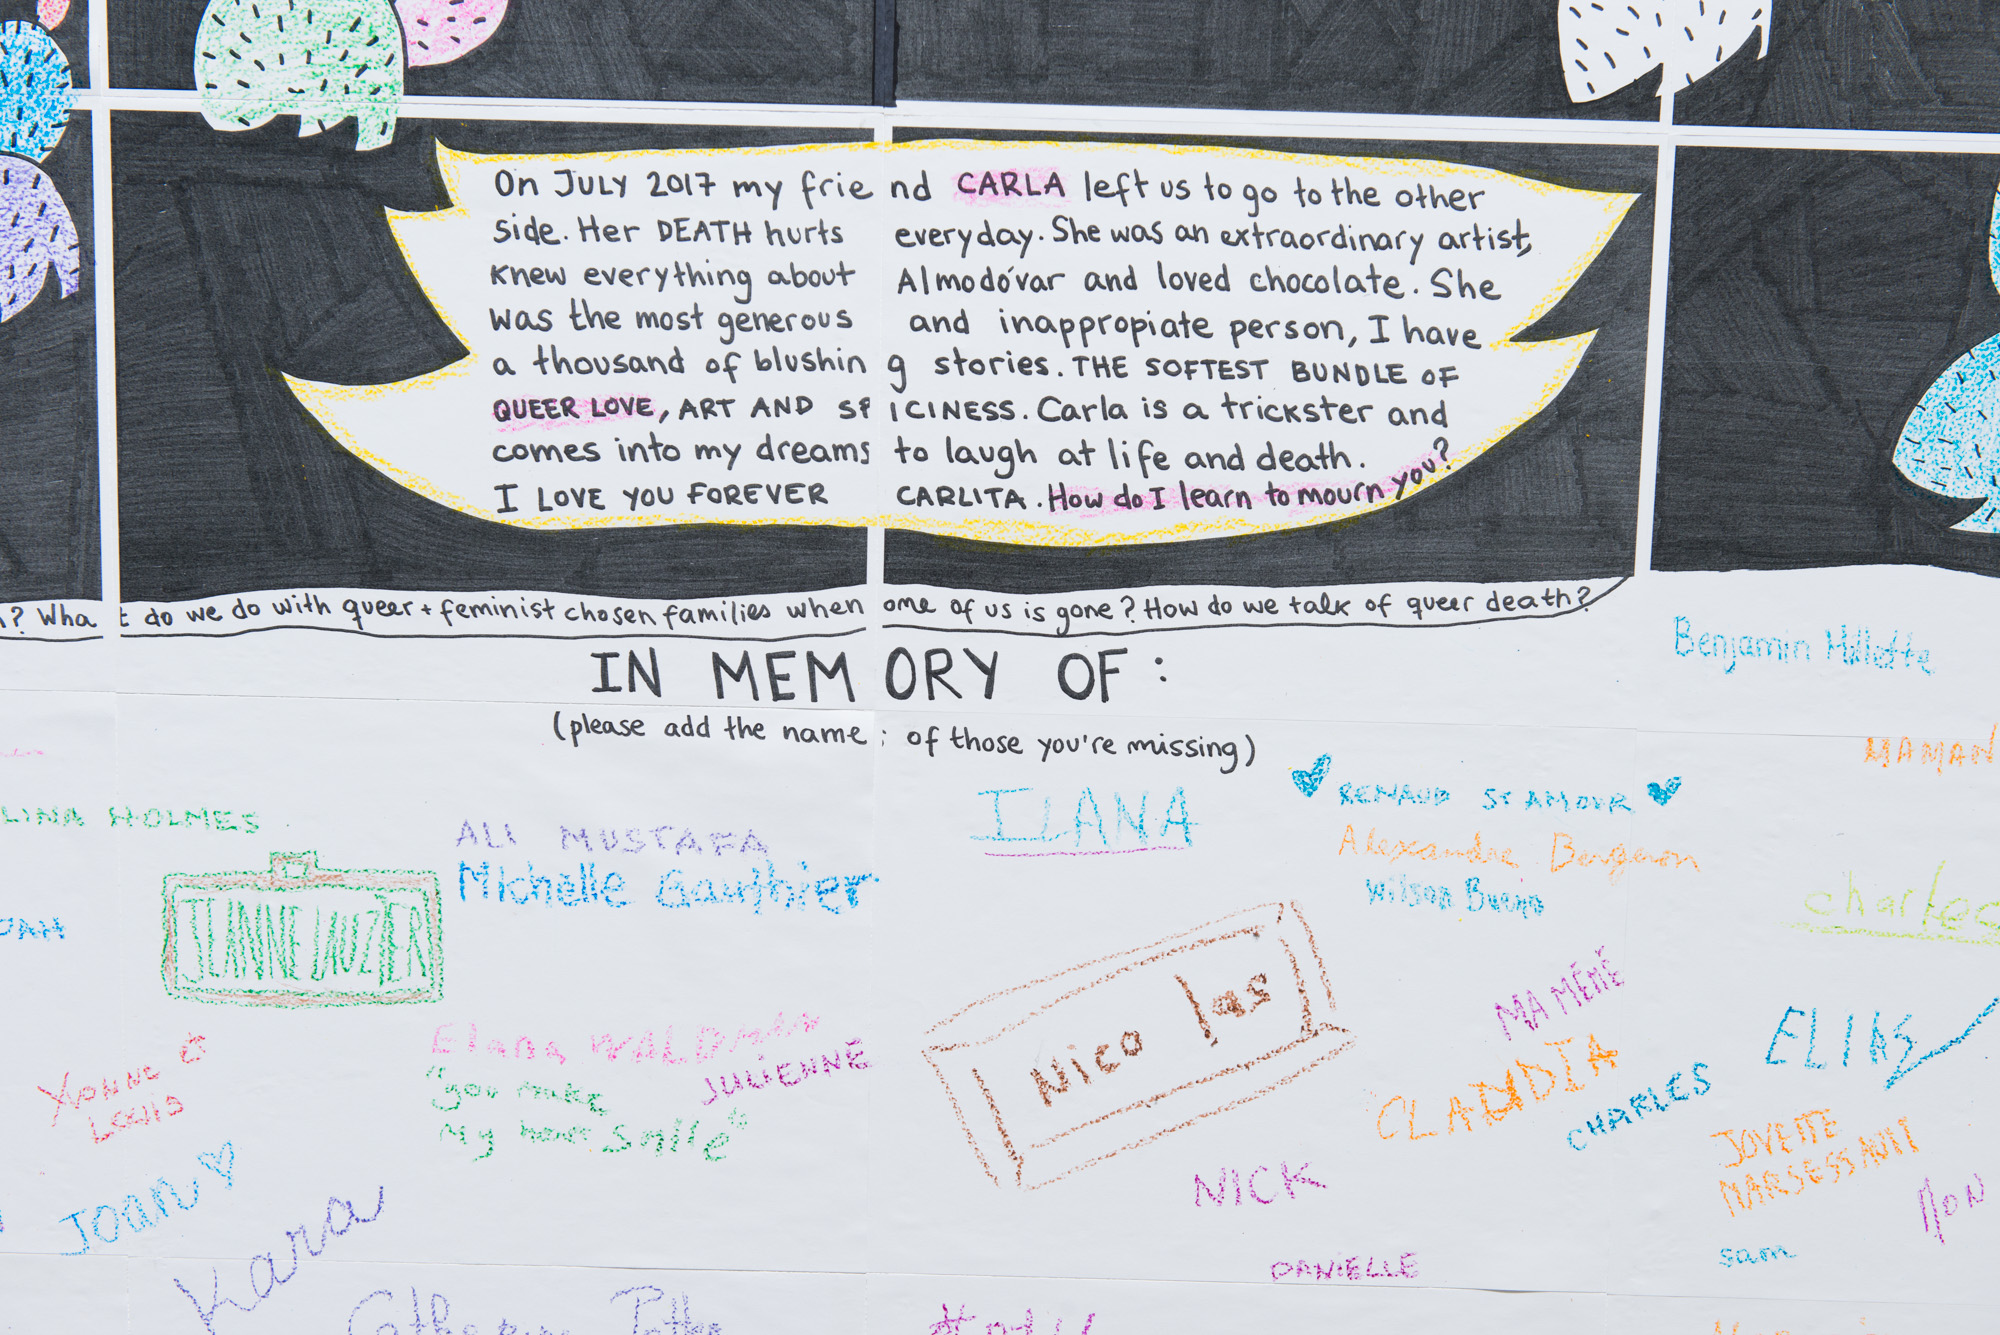 On JULY 2017 my friend CARLA left us to go to the other
side. Her DEATH hurts everyday. She was an extraordinary artist,
knew everything about Almodóvar and loved chocolate. She
was the most generous and inappropiate person, I have
a thousand of blushing stories. THE SOFTEST BUNDLE OF
QUEER LOVE, ART AND SPICINESS. Carla is a trickster and
comes into my dreams to laugh at life and death.
I LOVE YOU FOREVER CARLITA. How do I learn to mourn you?
? What do we do with queer + feminist chosen families when one of us is gone? How do we talk of queer death?
IN MEMORY OF:
(please add the names of those you're missing)
Benjamin
MAMAN
LINA HOLMES
ALI MUSTAFA
Michelle Gauthier
ILANA
RENAUD ST AMOUR
Alexandre Bergeron
Wilson Bueno
Charles
JEANNE LAUZIER
Nicolas
MA MÉMÉ
ELIAS
Elana WALDMAN
JULIENNE
"you make
My heart Smile"
Yvonne
Lewis
CLAUDIA
CHARLES
JOVETTE
NICK
Joan
Kara
sam
DANIELLE